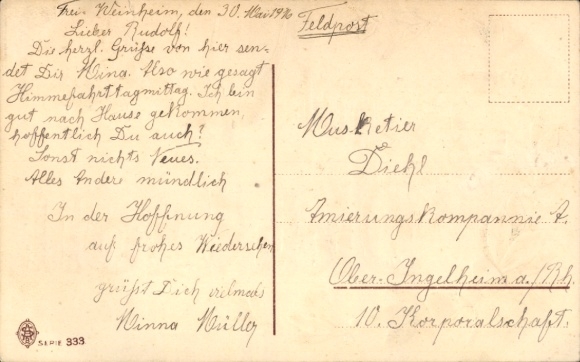 Frei-Weinheim, den 30. Mai 1916
Lieber Rudolf!
Die herzl. Grüsse von hier sen-
det Dir Mina. Also wie gesagt
Himmefahrttagmittag. Ich bin
gut nach Hause gekommen,
hoffentlich Du auch?
Sonst nichts Neues.
Alles Andere mündlich
In der Hoffnung
auf frohes Wiedersehen
grüsst Dich vielmals
Minna Müller
SERIE 333
Feldpost
Musketier
Diehl
Amierungskompannie A.
Ober-Ingelheim a./Rh.
10. Korporalschaft.